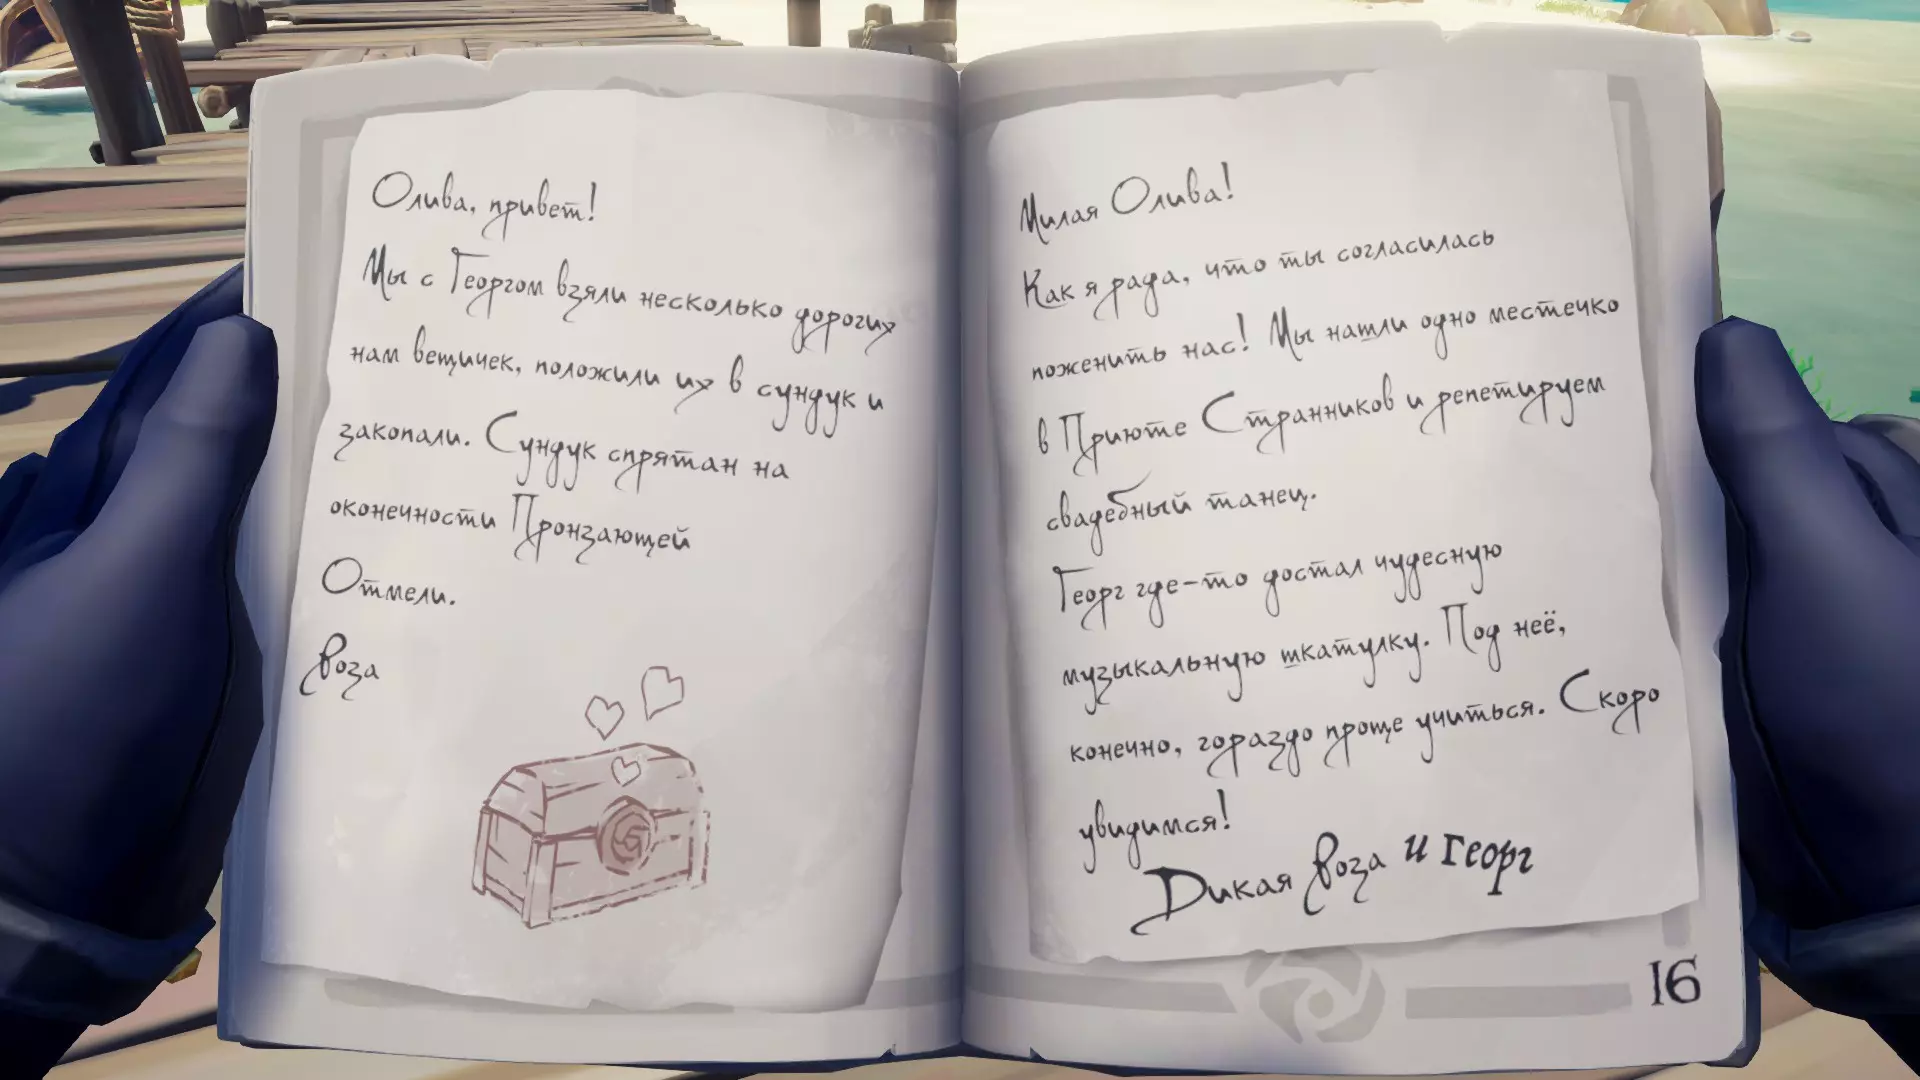 Олива, привет!
Мы с Георгом взяли несколько дорогих
нам вещичек, положили их в сундук и
закопали. Сундук спрятан на
оконечности Пронзающей
Отмели.
Роза
Милая Олива!
Как я рада, что ты согласилась
поженить нас! Мы нашли одно местечко
в Приюте Странников и репетируем
свадебный танец.
Георг где-то достал чудесную
музыкальную шкатулку. Под неё,
конечно, гораздо проще учиться. Скоро
увидимся!
Дикая Роза и Георг
16